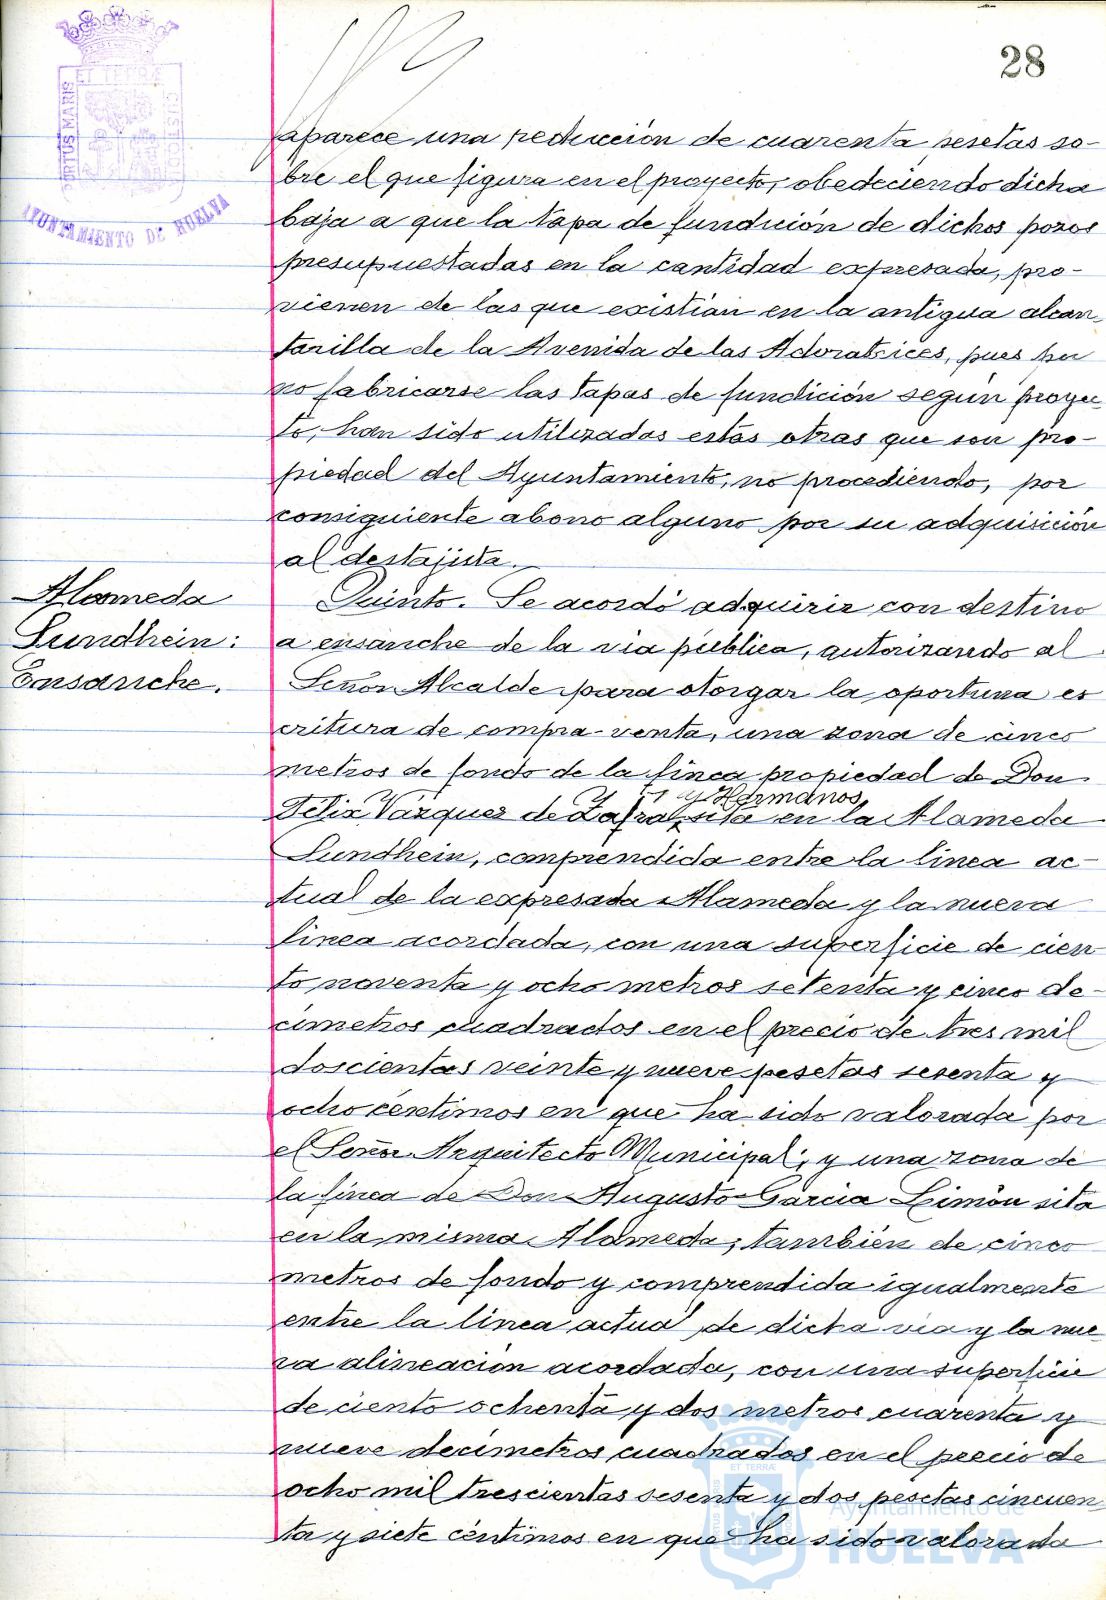 28
PORTUS MARIS
ET TERRÆ
CUSTODIA
AYUNTAMIENTO DE HUELVA
aparece una reducción de cuarenta pesetas so-
bre el que figura en el proyecto, obedeciendo dicha
baja a que la tapa de fundición de dichos pozos
presupuestadas en la cantidad expresada, pro-
vienen de las que existían en la antigua alcan-
tarilla de la Avenida de las Adoratrices, pues por
no fabricarse las tapas de fundición según proyec-
to, han sido utilizadas estas otras que son pro-
piedad del Ayuntamiento, no procediendo, por
consiguiente abono alguno por su adquisición
al destajista.
Alameda
Sundhein:
Ensanche.
Quinto. Se acordó adquirir con destino
a ensanche de la via pública, autorizando al
Señor Alcalde para otorgar la oportuna es
critura de compra-venta, una zona de cinco
metros de fondo de la finca propiedad de Don
y Hermanos,
Felix Vázquez de Zafra, sita en la Alameda
Sundhein, comprendida entre la linea ac-
tual de la expresada Alameda y la nueva
linea acordada, con una superficie de cien
to noventa y ocho metros setenta y cinco de-
címetros cuadrados en el precio de tres mil
doscientas veinte y nueve pesetas sesenta y
ocho céntimos en que ha sido valorada por
el Señor Arquitecto Municipal; y una zona de
la finca de Don Augusto Garcia Limón sita
en la misma Alameda, también de cinco
metros de fondo y comprendida igualmente
entre la linea actual de dicha via y la nue
va alineación acordada, con una superficie
de ciento ochenta y dos metros cuarenta y
nueve decimetros cuadrados en el precio de
ocho mil trescientas sesenta y dos pesetas cincuen
ta y siete céntimos en que ha sido valorada
Ayuntamiento de
HUELVA